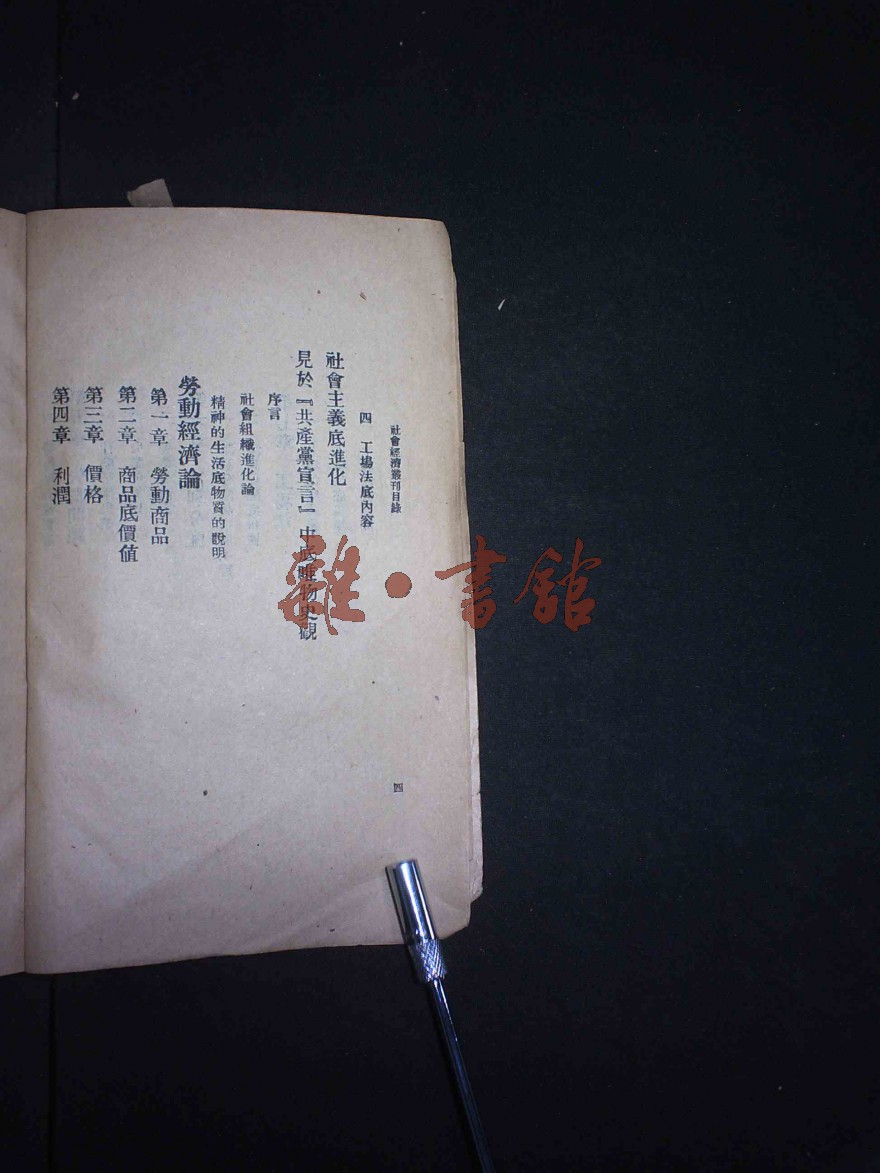 社會經濟叢刊目錄
四
四 工場法底內容
社會主義底進化
見於『共產黨宣言』中底唯物史觀
序言
社會組織進化論
精神的生活底物質的說明
勞動經濟論
第一章 勞動商品
第二章 商品底價值
第三章 價格
第四章 利潤
雜·書館